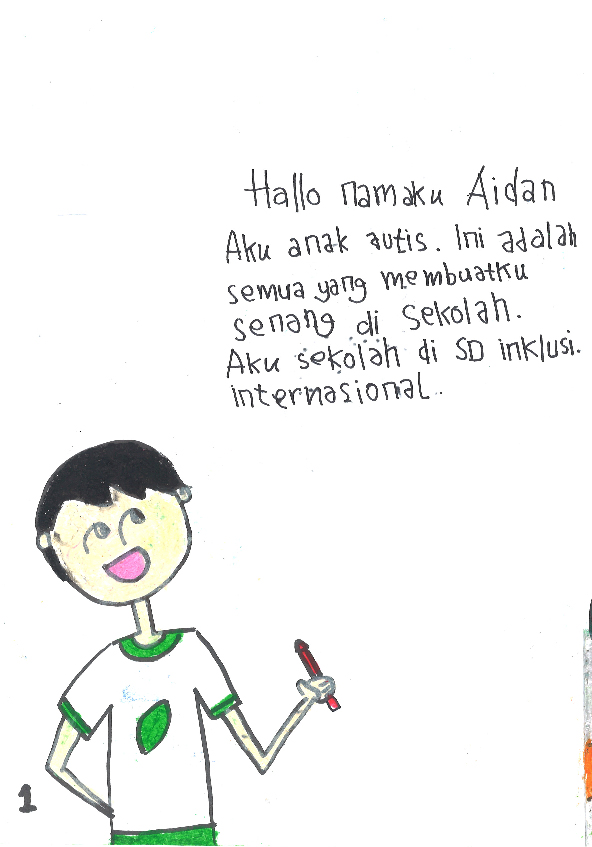 Hallo namaku Aidan
Aku anak autis. Ini adalah
semua yang membuatku
senang di Sekolah.
Aku sekolah di SD inklusi.
internasional..
1